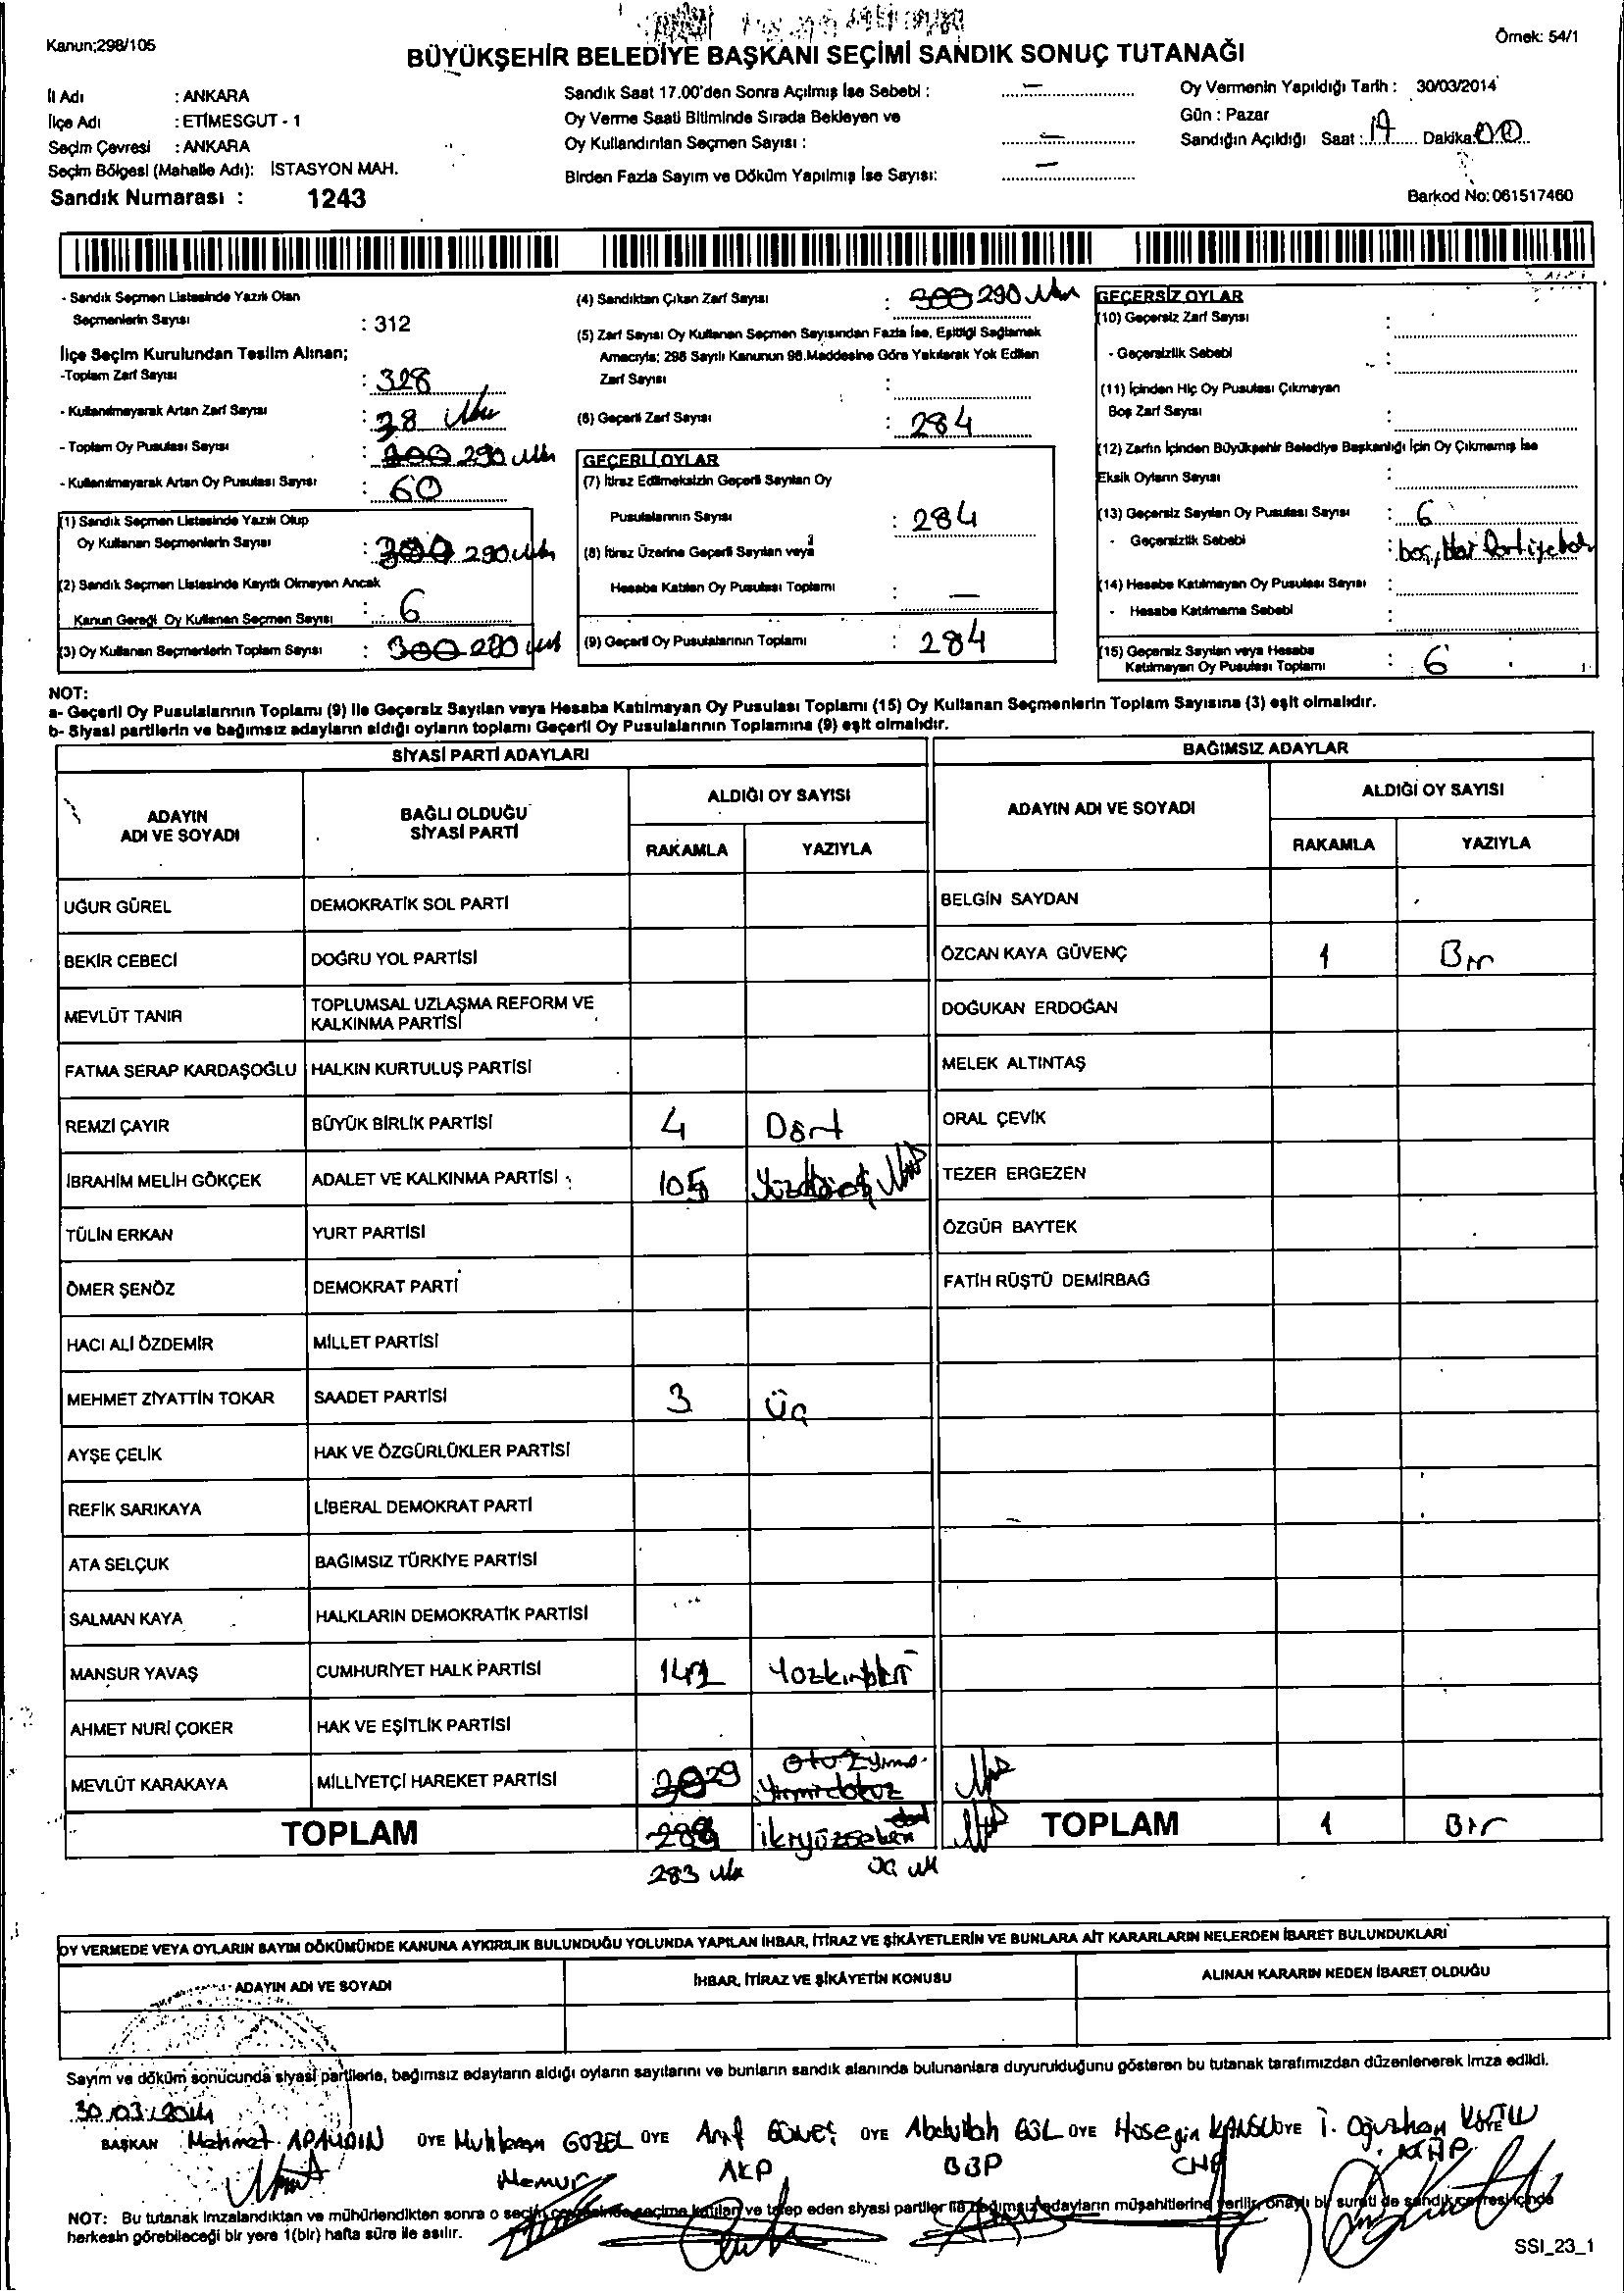 Kanun;298/105
Örnek: 54/1
BÜYÜKŞEHİR BELEDİYE BAŞKANI SEÇİMİ SANDIK SONUÇ TUTANAĞI
İl Adı : ANKARA
İlçe Adı : ETİMESGUT - 1
Seçim Çevresi : ANKARA
Seçim Bölgesi (Mahalle Adı): İSTASYON MAH.
Sandık Numarası : 1243
Sandık Saat 17.00'den Sonra Açılmış İse Sebebi : —
Oy Verme Saati Bitiminde Sırada Bekleyen ve
Oy Kullandırılan Seçmen Sayısı : —
Birden Fazla Sayım ve Döküm Yapılmış İse Sayısı: —
Oy Vermenin Yapıldığı Tarih : 30/03/2014
Gün : Pazar
Sandığın Açıldığı Saat : 17 Dakika 00
Barkod No:061517460
- Sandık Seçmen Listesinde Yazılı Olan
Seçmenlerin Sayısı : 312
İlçe Seçim Kurulundan Teslim Alınan;
-Toplam Zarf Sayısı : 328
- Kullanılmayarak Artan Zarf Sayısı : 38
- Toplam Oy Pusulası Sayısı : 290
- Kullanılmayarak Artan Oy Pusulası Sayısı : 60
(1) Sandık Seçmen Listesinde Yazılı Olup
Oy Kullanan Seçmenlerin Sayısı : 290
(2) Sandık Seçmen Listesinde Kayıtlı Olmayan Ancak
Kanun Gereği Oy Kullanan Seçmen Sayısı : 6
(3) Oy Kullanan Seçmenlerin Toplam Sayısı : 300 280
(4) Sandıktan Çıkan Zarf Sayısı : 300 290
(5) Zarf Sayısı Oy Kullanan Seçmen Sayısından Fazla İse, Eşitliği Sağlamak
Amacıyla; 298 Sayılı Kanunun 98.Maddesine Göre Yakılarak Yok Edilen
Zarf Sayısı :
(6) Geçerli Zarf Sayısı : 284
GEÇERLİ OYLAR
(7) İtiraz Edilmeksizin Geçerli Sayılan Oy
Pusulalarının Sayısı : 284
(8) İtiraz Üzerine Geçerli Sayılan veya
Hesaba Katılan Oy Pusulası Toplamı : —
(9) Geçerli Oy Pusulalarının Toplamı : 284
GEÇERSİZ OYLAR
(10) Geçersiz Zarf Sayısı :
- Geçersizlik Sebebi :
(11) İçinden Hiç Oy Pusulası Çıkmayan
Boş Zarf Sayısı :
(12) Zarfın İçinden Büyükşehir Belediye Başkanlığı İçin Oy Çıkmamış İse
Eksik Oyların Sayısı :
(13) Geçersiz Sayılan Oy Pusulası Sayısı : 6
- Geçersizlik Sebebi : boş,
(14) Hesaba Katılmayan Oy Pusulası Sayısı :
- Hesaba Katılmama Sebebi :
(15) Geçersiz Sayılan veya Hesaba
Katılmayan Oy Pusulası Toplamı : 6
NOT:
a- Geçerli Oy Pusulalarının Toplamı (9) ile Geçersiz Sayılan veya Hesaba Katılmayan Oy Pusulası Toplamı (15) Oy Kullanan Seçmenlerin Toplam Sayısına (3) eşit olmalıdır.
b- Siyasi partilerin ve bağımsız adayların aldığı oyların toplamı Geçerli Oy Pusulalarının Toplamına (9) eşit olmalıdır.
SİYASİ PARTİ ADAYLARI
ADAYIN ADI VE SOYADI
BAĞLI OLDUĞU SİYASİ PARTİ
ALDIĞI OY SAYISI
RAKAMLA YAZIYLA
UĞUR GÜREL DEMOKRATİK SOL PARTİ
BEKİR CEBECİ DOĞRU YOL PARTİSİ
MEVLÜT TANIR TOPLUMSAL UZLAŞMA REFORM VE
KALKINMA PARTİSİ
FATMA SERAP KARDAŞOĞLU HALKIN KURTULUŞ PARTİSİ
REMZİ ÇAYIR BÜYÜK BİRLİK PARTİSİ 4 Dört
İBRAHİM MELİH GÖKÇEK ADALET VE KALKINMA PARTİSİ 105
TÜLİN ERKAN YURT PARTİSİ
ÖMER ŞENÖZ DEMOKRAT PARTİ
HACI ALİ ÖZDEMİR MİLLET PARTİSİ
MEHMET ZİYATTİN TOKAR SAADET PARTİSİ 3 Üç
AYŞE ÇELİK HAK VE ÖZGÜRLÜKLER PARTİSİ
REFİK SARIKAYA LİBERAL DEMOKRAT PARTİ
ATA SELÇUK BAĞIMSIZ TÜRKİYE PARTİSİ
SALMAN KAYA HALKLARIN DEMOKRATİK PARTİSİ
MANSUR YAVAŞ CUMHURİYET HALK PARTİSİ 142
AHMET NURİ ÇOKER HAK VE EŞİTLİK PARTİSİ
MEVLÜT KARAKAYA MİLLİYETÇİ HAREKET PARTİSİ 29 Yirmidokuz
TOPLAM ikiyüzseksen
283 üç
BAĞIMSIZ ADAYLAR
ADAYIN ADI VE SOYADI
ALDIĞI OY SAYISI
RAKAMLA YAZIYLA
BELGİN SAYDAN
ÖZCAN KAYA GÜVENÇ 1 Bir
DOĞUKAN ERDOĞAN
MELEK ALTINTAŞ
ORAL ÇEVİK
TEZER ERGEZEN
ÖZGÜR BAYTEK
FATİH RÜŞTÜ DEMİRBAĞ
TOPLAM 1 Bir
OY VERMEDE VEYA OYLARIN SAYIM DÖKÜMÜNDE KANUNA AYKIRILIK BULUNDUĞU YOLUNDA YAPILAN İHBAR, İTİRAZ VE ŞİKÂYETLERİN VE BUNLARA AİT KARARLARIN NELERDEN İBARET BULUNDUKLARI
ADAYIN ADI VE SOYADI İHBAR, İTİRAZ VE ŞİKÂYETİN KONUSU ALINAN KARARIN NEDEN İBARET OLDUĞU
Sayım ve döküm sonucunda siyasi partilerle, bağımsız adayların aldığı oyların sayılarını ve bunların sandık alanında bulunanlara duyurulduğunu gösteren bu tutanak tarafımızdan düzenlenerek imza edildi.
30/03/2014
BAŞKAN Mehmet APAYDIN ÜYE GÜZEL ÜYE Arif GÜNEŞ ÜYE Abdullah GÜL ÜYE Hüseyin ÜYE İ. Oğuzhan
Memur AKP BBP CHP MHP
NOT: Bu tutanak imzalandıktan ve mühürlendikten sonra o seçim çevresinde seçime katılan ve talep eden siyasi partiler ile bağımsız adayların müşahitlerine verilir, onaylı bir sureti de sandık çevresi içinde
herkesin görebileceği bir yere 1(bir) hafta süre ile asılır.
SSI_23_1